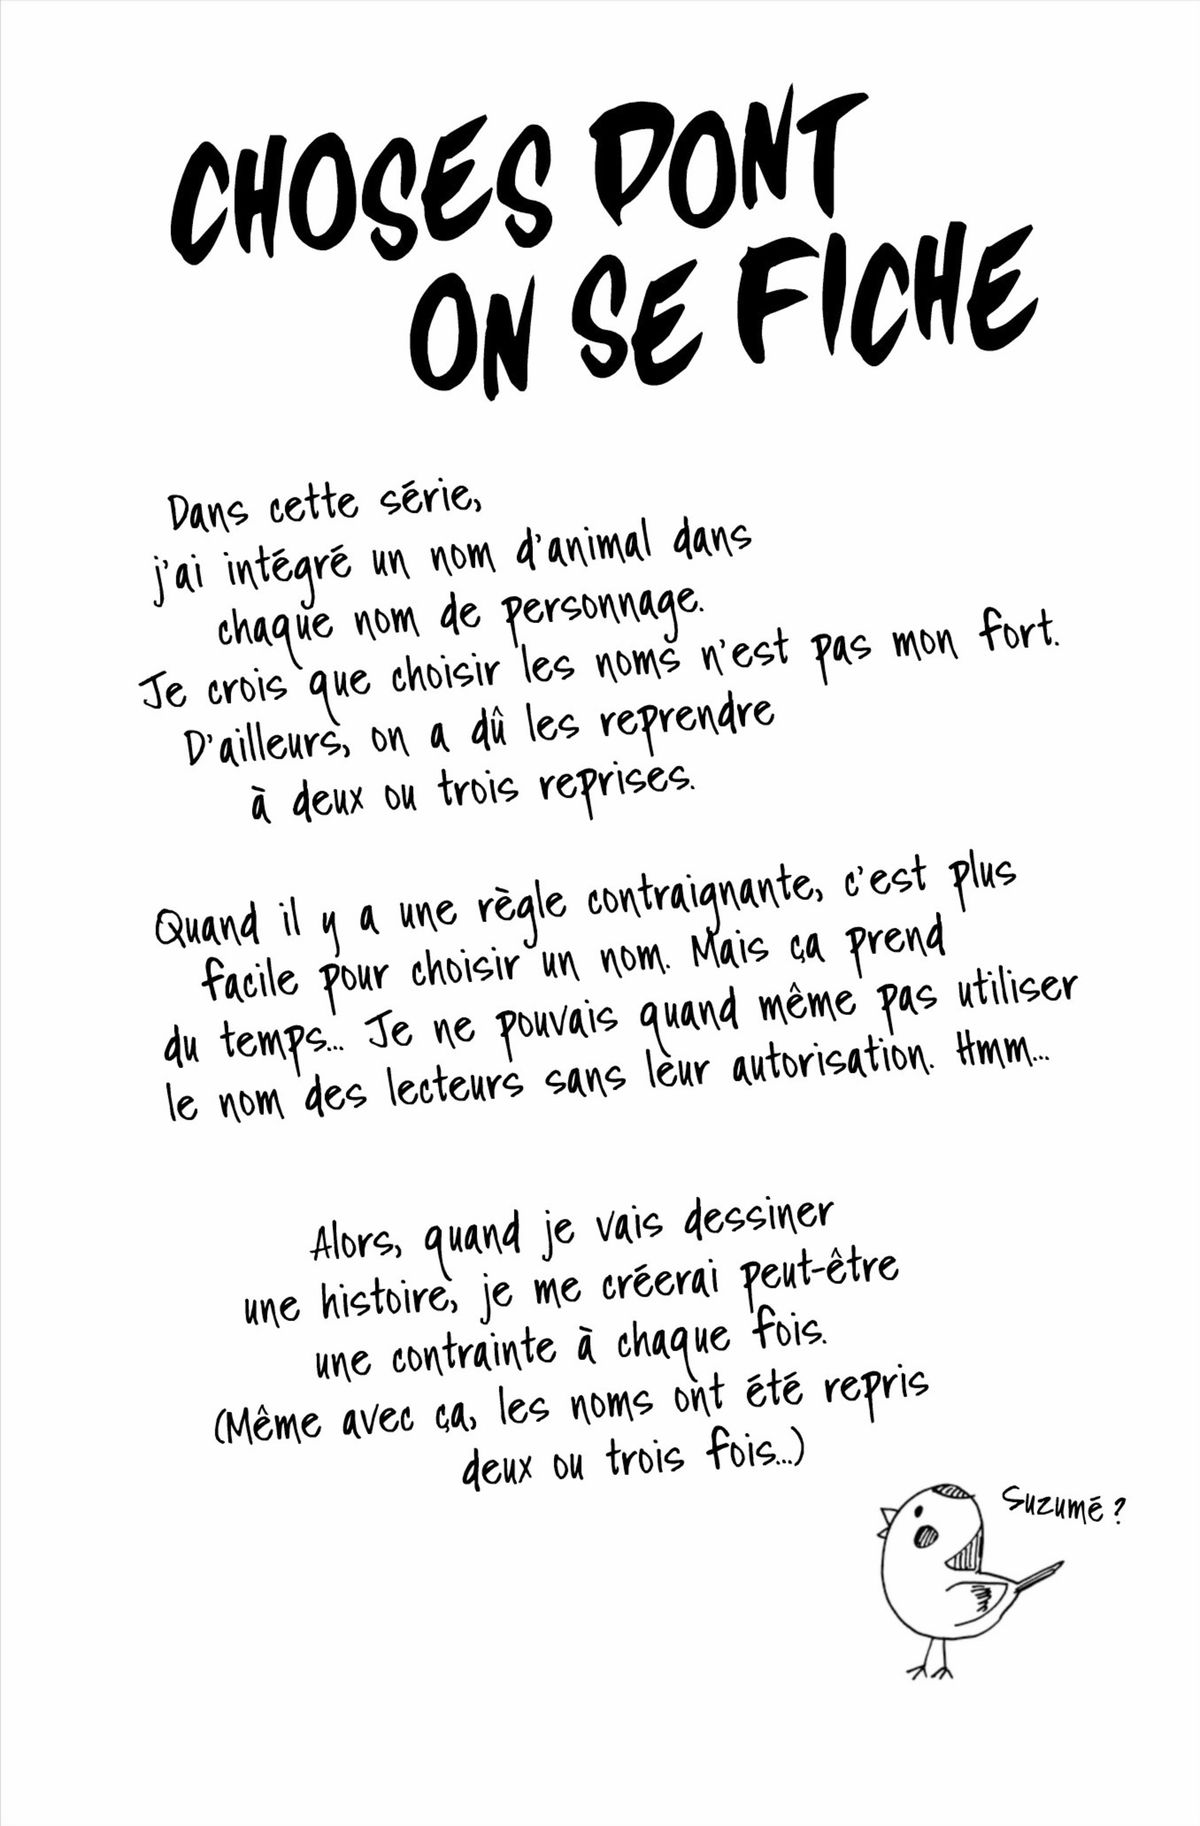 CHOSES DONT
ON SE FICHE
Dans cette série,
j'ai intégré un nom d'animal dans
chaque nom de personnage.
Je crois que choisir les noms n'est pas mon fort.
D'ailleurs, on a dû les reprendre
à deux ou trois reprises.
Quand il y a une règle contraignante, c'est plus
facile pour choisir un nom. Mais ça prend
du temps... Je ne pouvais quand même pas utiliser
le nom des lecteurs sans leur autorisation. Hmm...
Alors, quand je vais dessiner
une histoire, je me créerai peut-être
une contrainte à chaque fois.
(Même avec ça, les noms ont été repris
deux ou trois fois...)
Suzumé ?